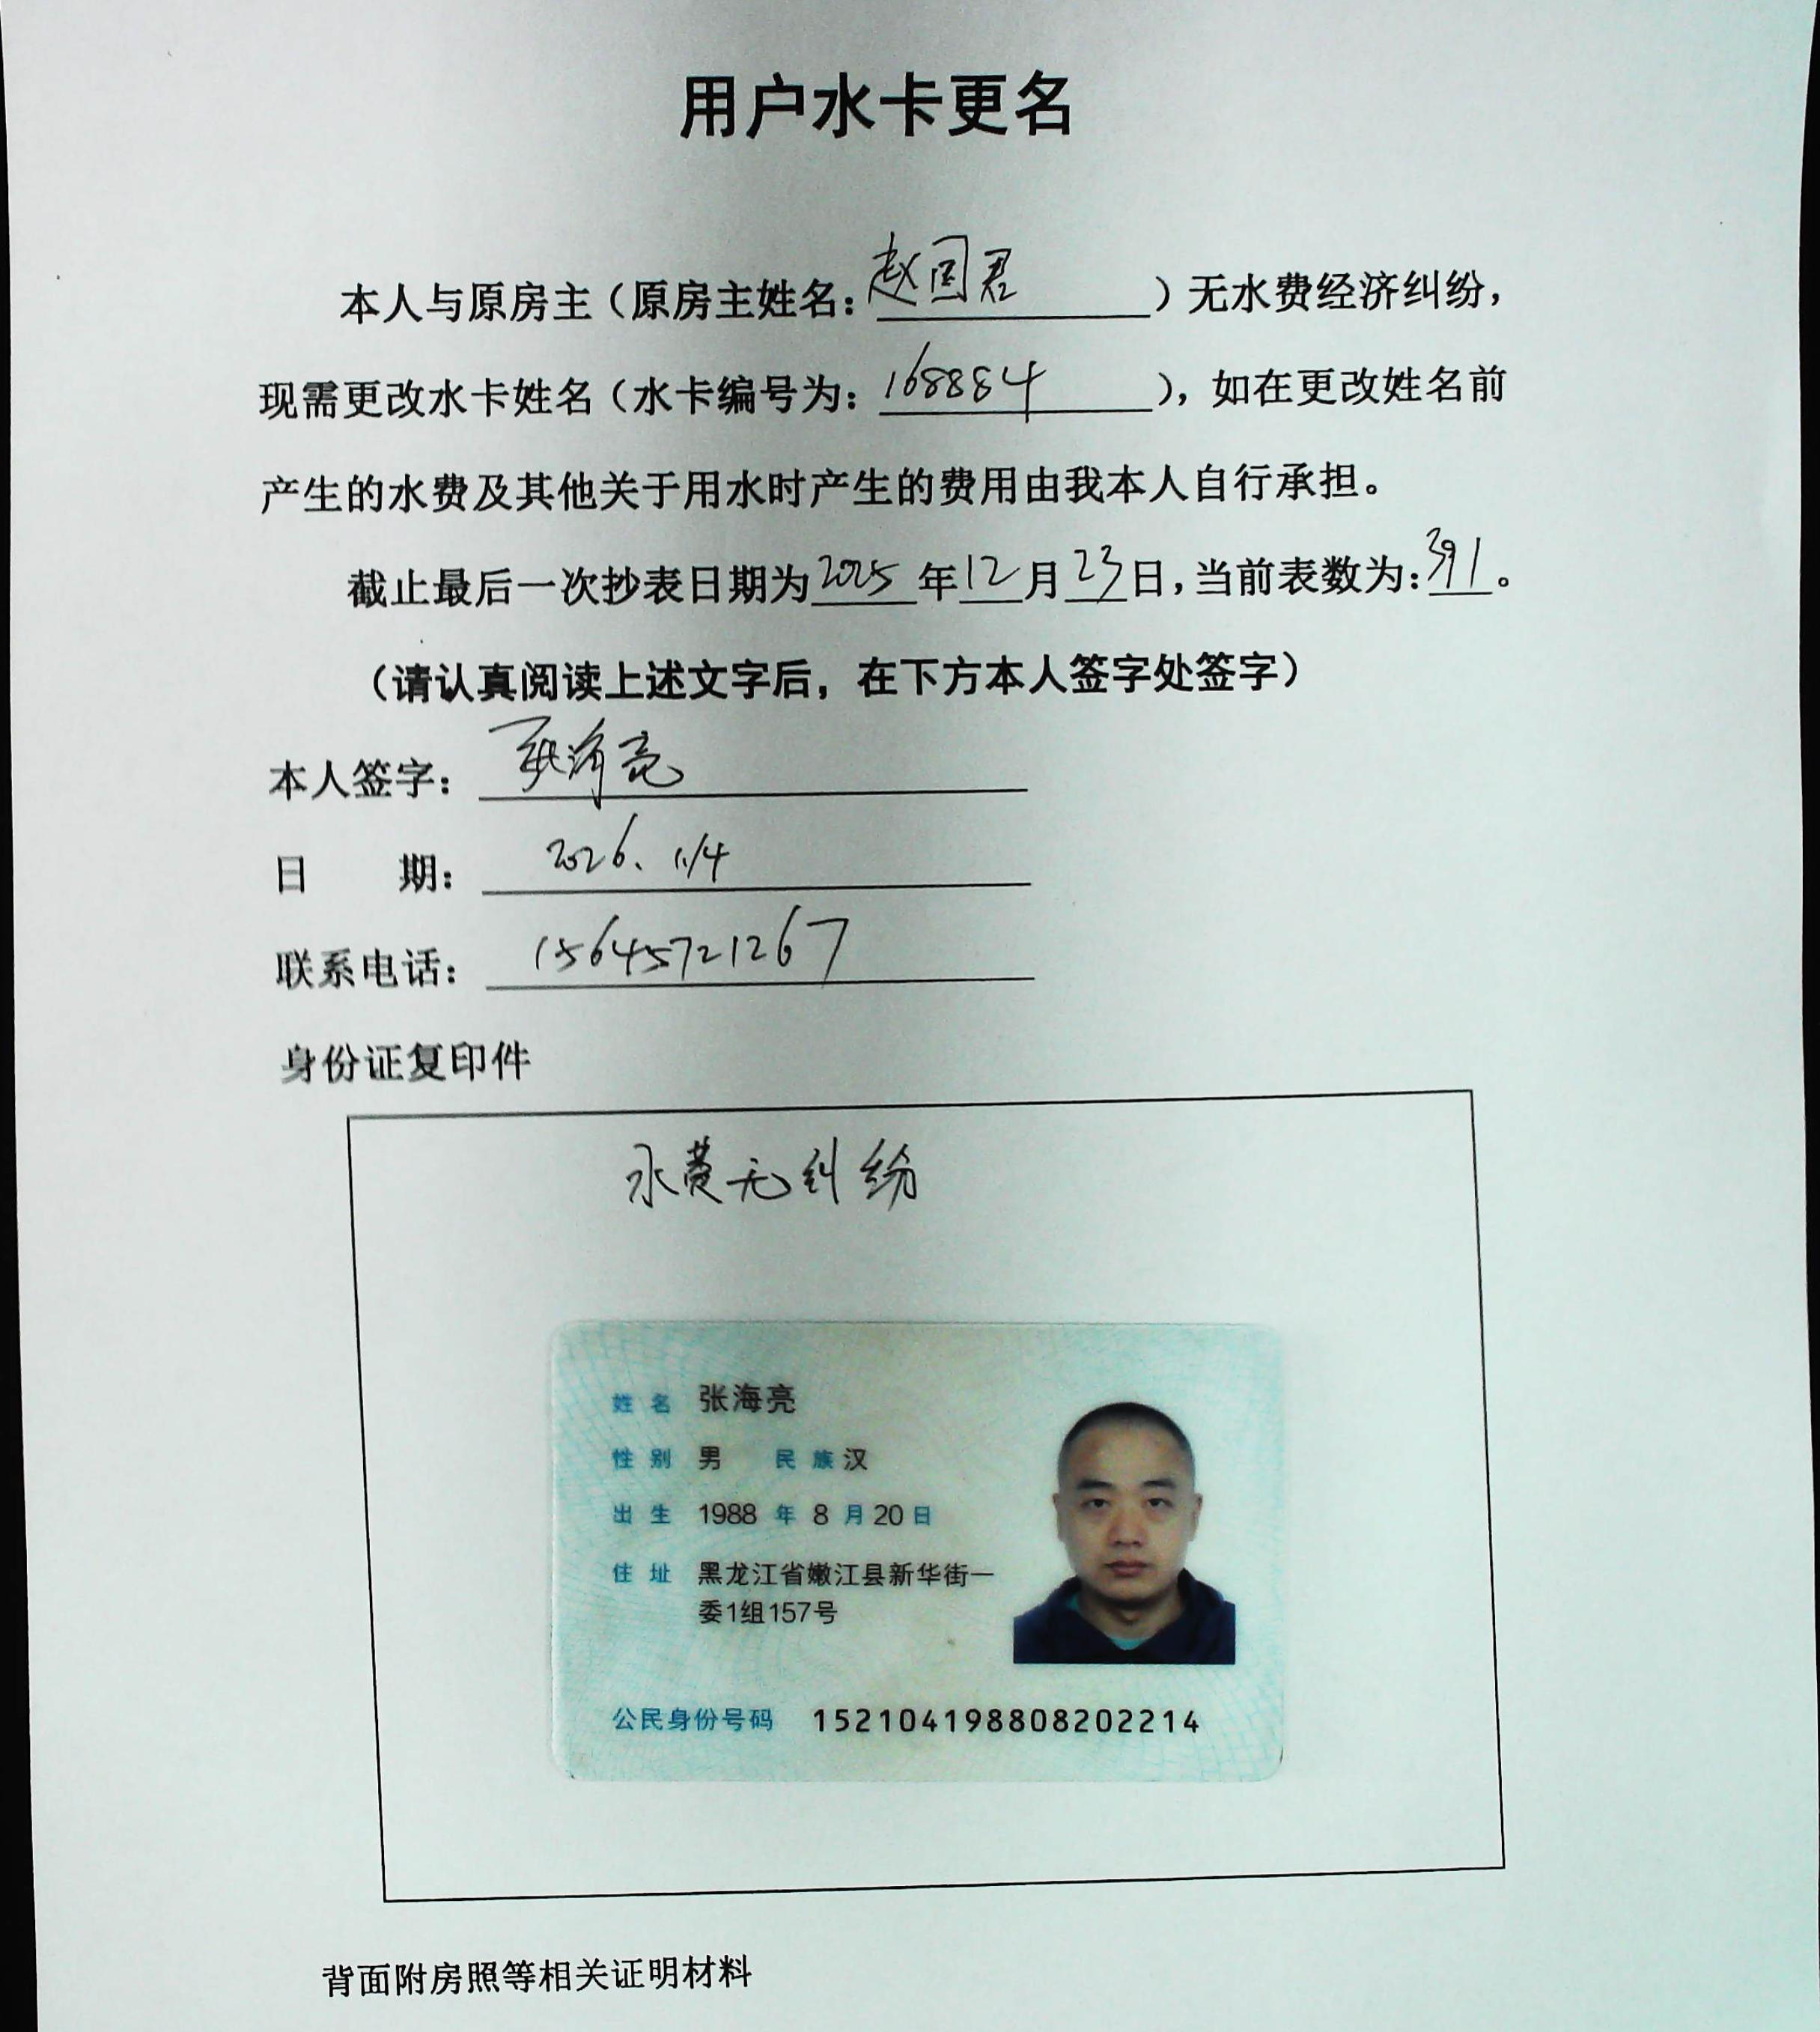 用户水卡更名
本人与原房主（原房主姓名：赵国君）无水费经济纠纷，
现需更改水卡姓名（水卡编号为：168884），如在更改姓名前
产生的水费及其他关于用水时产生的费用由我本人自行承担。
截止最后一次抄表日期为2025年12月23日，当前表数为：391。
（请认真阅读上述文字后，在下方本人签字处签字）
本人签字：张海亮
日 期：2026.1/4
联系电话：15645721267
身份证复印件
水费无纠纷
姓名 张海亮
性别 男 民族 汉
出生 1988年8月20日
住址 黑龙江省嫩江县新华街一
委1组157号
公民身份号码 152104198808202214
背面附房照等相关证明材料